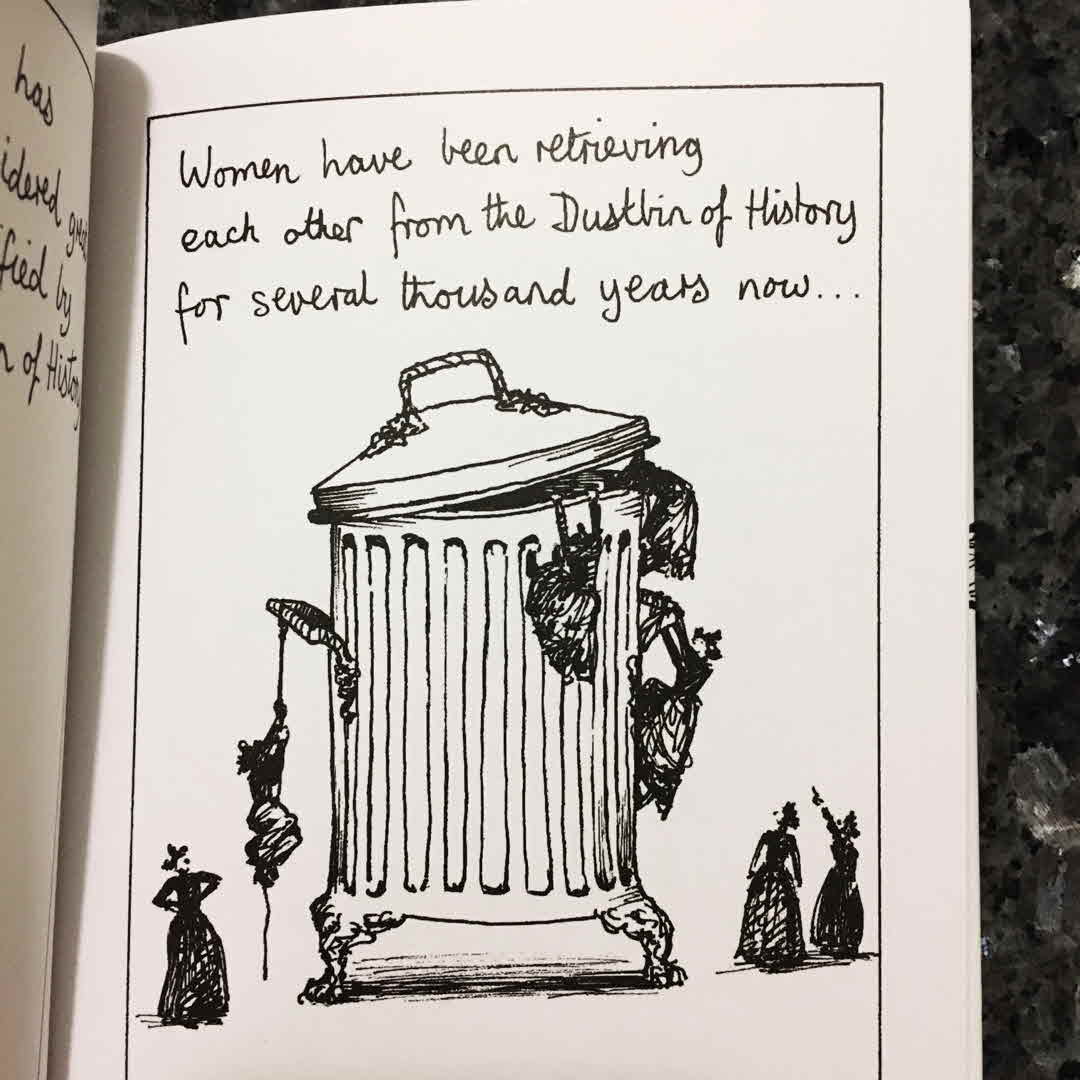 has
by
of
Women have been retrieving
each other from the Dustbin of History
for several thousand years now...